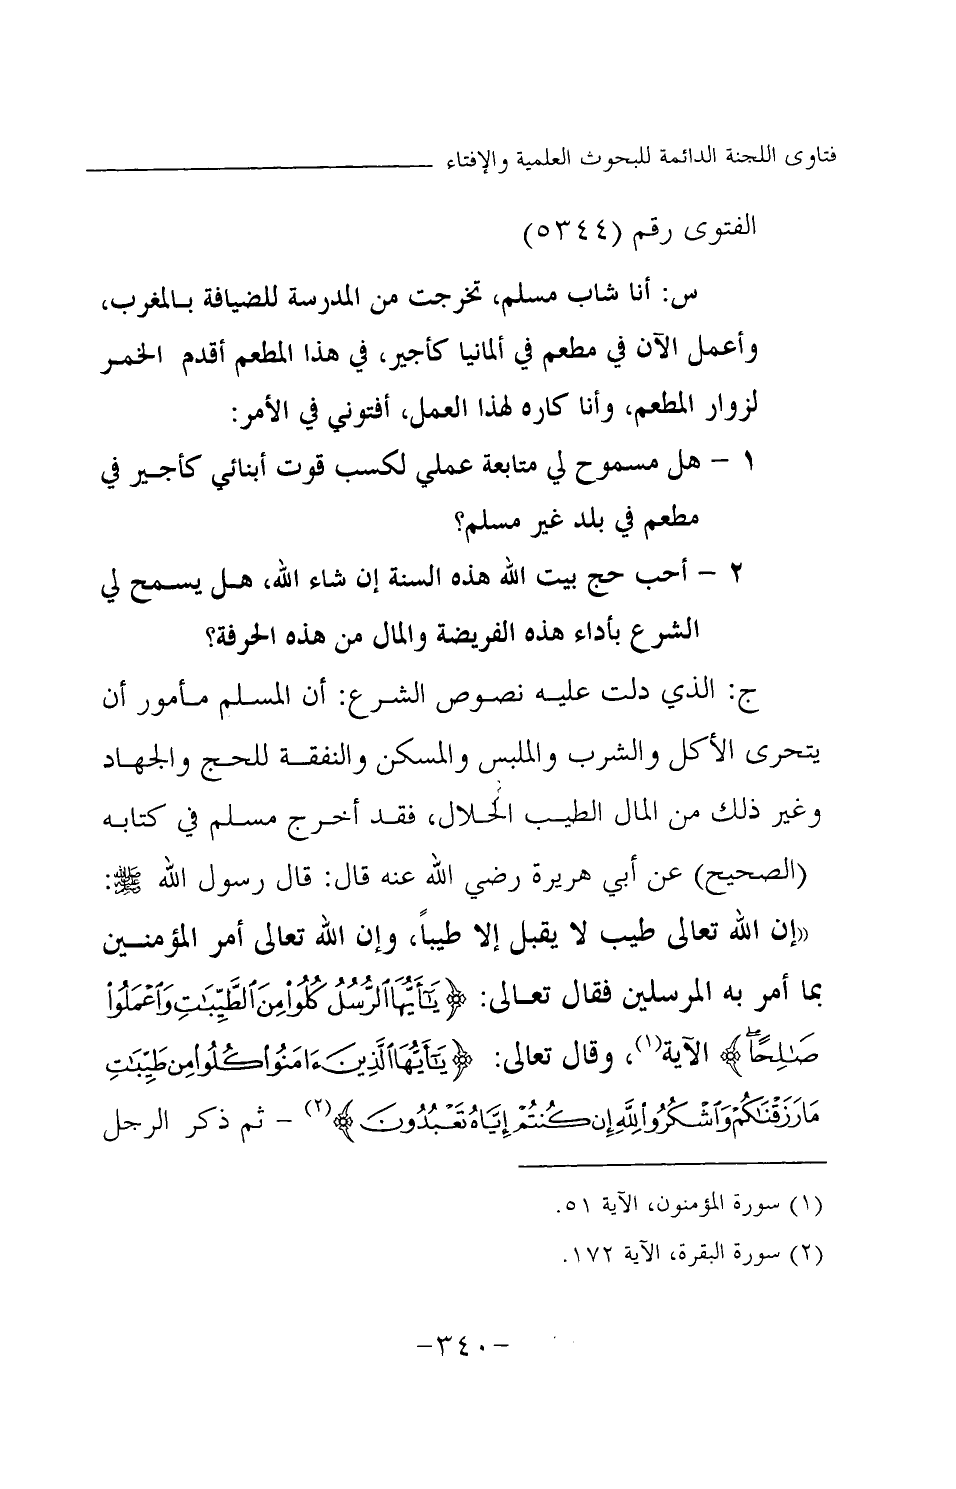 فتاوى اللجنة الدائمة للبحوث العلمية والإفتاء
الفتوى رقم (٥٣٤٤)
س: أنا شاب مسلم، تخرجت من المدرسة للضيافة بالمغرب،
وأعمل الآن في مطعم في ألمانيا كأجير، في هذا المطعم أقدم الخمر
لزوار المطعم، وأنا كاره لهذا العمل، أفتوني في الأمر:
١ - هل مسموح لي متابعة عملي لكسب قوت أبنائي كأجير في
مطعم في بلد غير مسلم؟
٢ - أحب حج بيت الله هذه السنة إن شاء الله، هل يسمح لي
الشرع بأداء هذه الفريضة والمال من هذه الحرفة؟
ج: الذي دلت عليه نصوص الشرع: أن المسلم مأمور أن
يتحرى الأكل والشرب والملبس والمسكن والنفقة للحج والجهاد
وغير ذلك من المال الطيب الحلال، فقد أخرج مسلم في كتابه
(الصحيح) عن أبي هريرة رضي الله عنه قال: قال رسول الله ﷺ:
«إن الله تعالى طيب لا يقبل إلا طيباً، وإن الله تعالى أمر المؤمنين
بما أمر به المرسلين فقال تعالى: ﴿يَٰٓأَيُّهَا ٱلرُّسُلُ كُلُوا۟ مِنَ ٱلطَّيِّبَٰتِ وَٱعْمَلُوا۟
صَٰلِحًاۖ﴾ الآية(١)، وقال تعالى: ﴿يَٰٓأَيُّهَا ٱلَّذِينَ ءَامَنُوا۟ كُلُوا۟ مِن طَيِّبَٰتِ
مَا رَزَقْنَٰكُمْ وَٱشْكُرُوا۟ لِلَّهِ إِن كُنتُمْ إِيَّاهُ تَعْبُدُونَ﴾(٢) - ثم ذكر الرجل
(١) سورة المؤمنون، الآية ٥١.
(٢) سورة البقرة، الآية ١٧٢.
-٣٤٠-